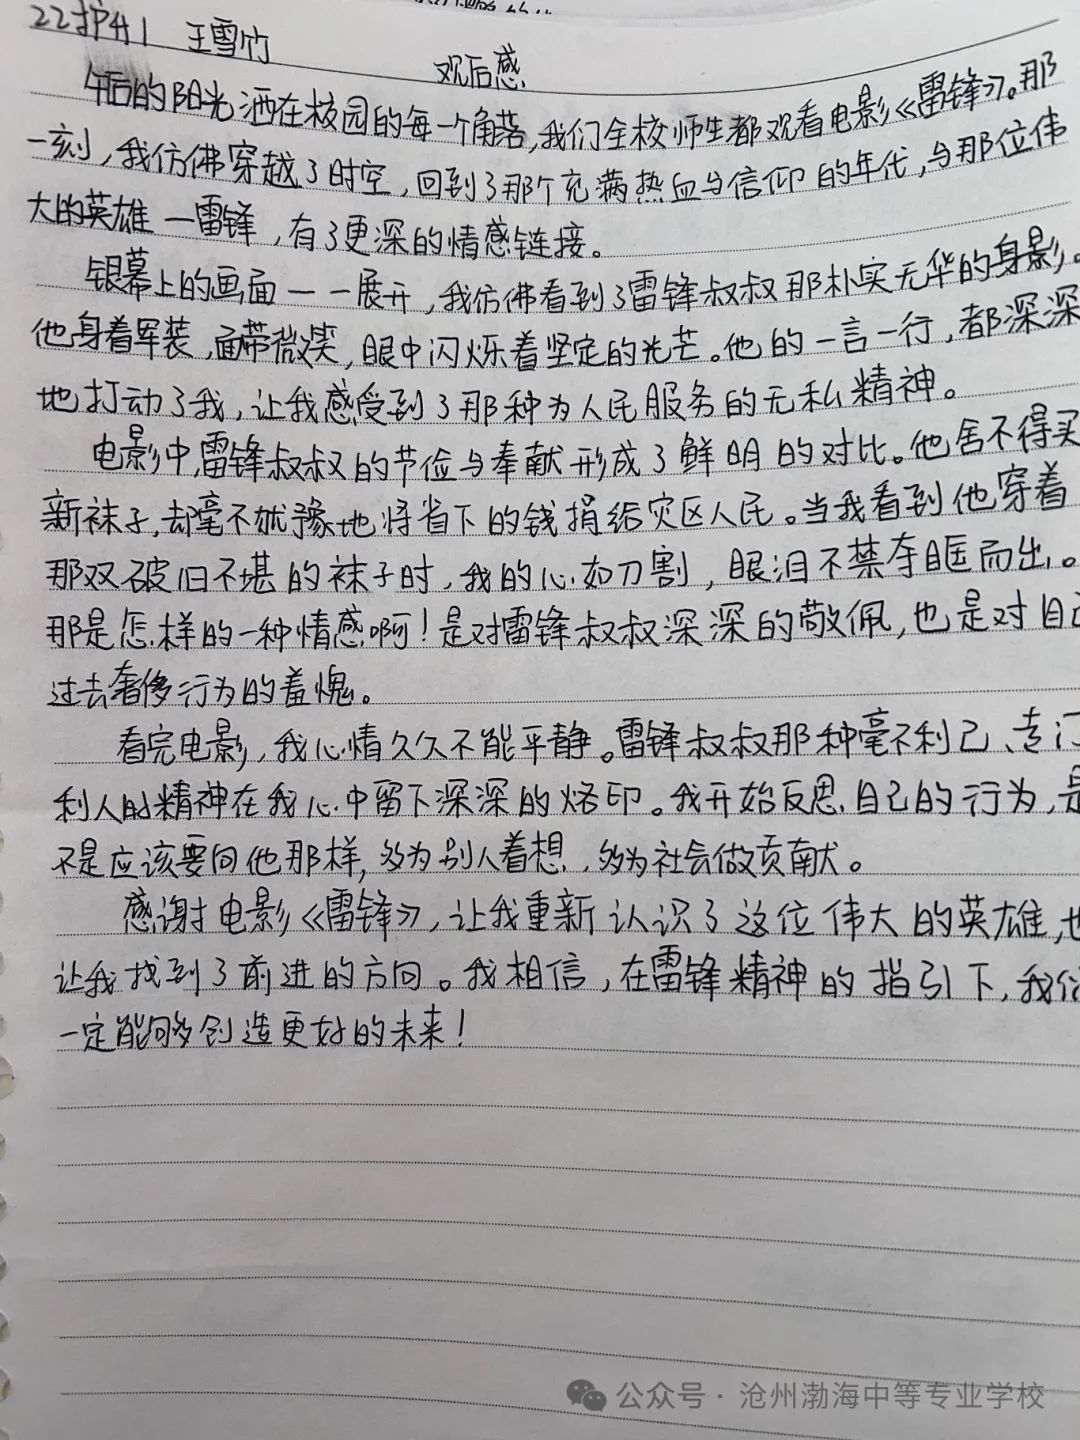 22护升1 王雪竹
观后感
午后的阳光洒在校园的每一个角落,我们全校师生都观看电影《雷锋》。那
一刻,我仿佛穿越了时空,回到了那个充满热血与信仰的年代,与那位伟
大的英雄一雷锋,有了更深的情感链接。
银幕上的画面一一展开,我仿佛看到了雷锋叔叔那朴实无华的身影。
他身着军装,面带微笑,眼中闪烁着坚定的光芒。他的一言一行,都深深
地打动了我,让我感受到了那种为人民服务的无私精神。
电影中,雷锋叔叔的节俭与奉献形成了鲜明的对比。他舍不得买
新袜子,却毫不犹豫地将省下的钱捐给灾区人民。当我看到他穿着
那双破旧不堪的袜子时,我的心如刀割,眼泪不禁夺眶而出。
那是怎样的一种情感啊!是对雷锋叔叔深深的敬佩,也是对自己
过去奢侈行为的羞愧。
看完电影,我心情久久不能平静。雷锋叔叔那种毫不利己、专门
利人的精神在我心中留下深深的烙印。我开始反思自己的行为,是
不是应该要向他那样,多为别人着想,多为社会做贡献。
感谢电影《雷锋》,让我重新认识了这位伟大的英雄,也
让我找到了前进的方向。我相信,在雷锋精神的指引下,我们
一定能够创造更好的未来!
公众号·沧州渤海中等专业学校